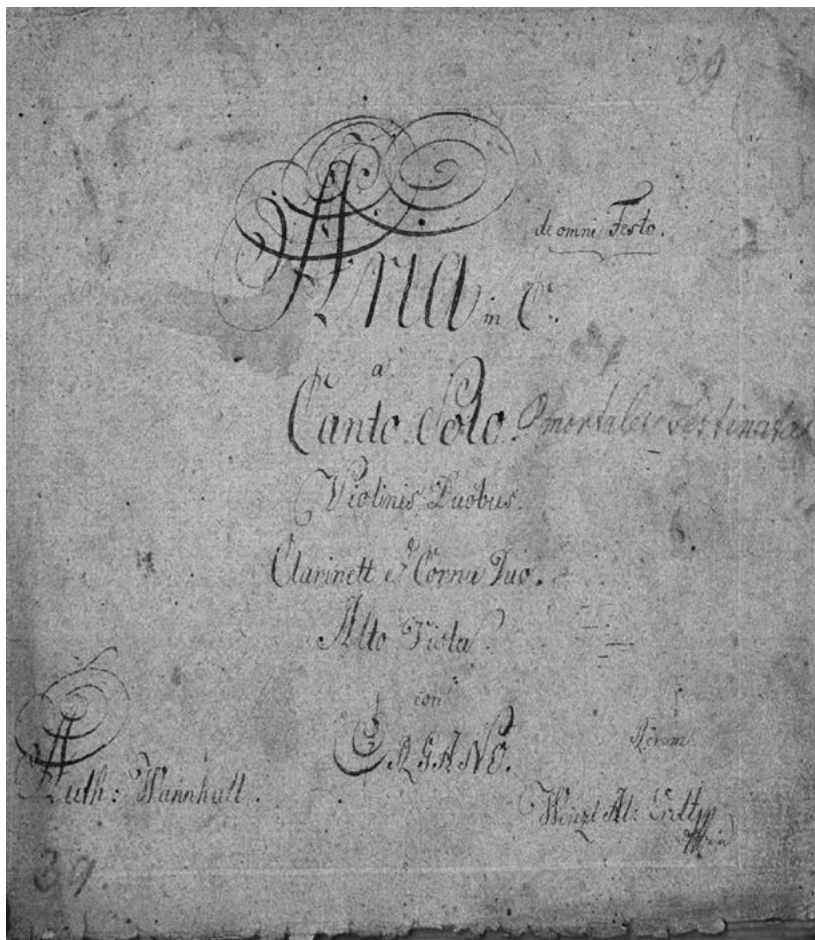 39
de omni Festo.
Aria in C.
a
Canto Solo. O mortales festinate
Violinis Duobus.
Clarinett et Cornu Duo.
Alto Viola
con
ORGANO.
Rerum
Auth: Wannhall.
Wenzl
39.